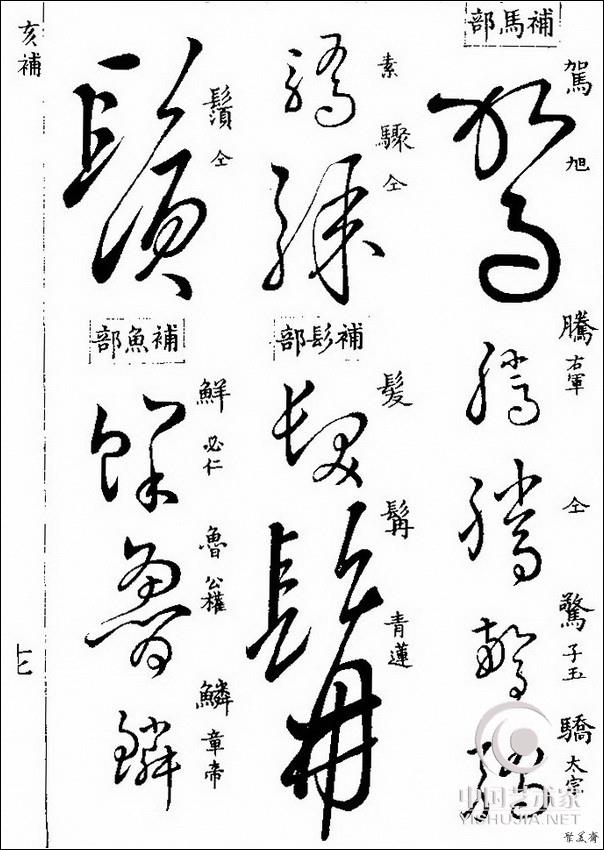 補馬部
駕 旭
騰 右軍
仝
驚 子玉
驕 太宗
素
驟 仝
補髟部
髮
髯 青蓮
鬚 仝
補魚部
鮮 必仁
魯 公權
鱗 章帝
亥補
七
中国艺术家
YISHUJIA.NET